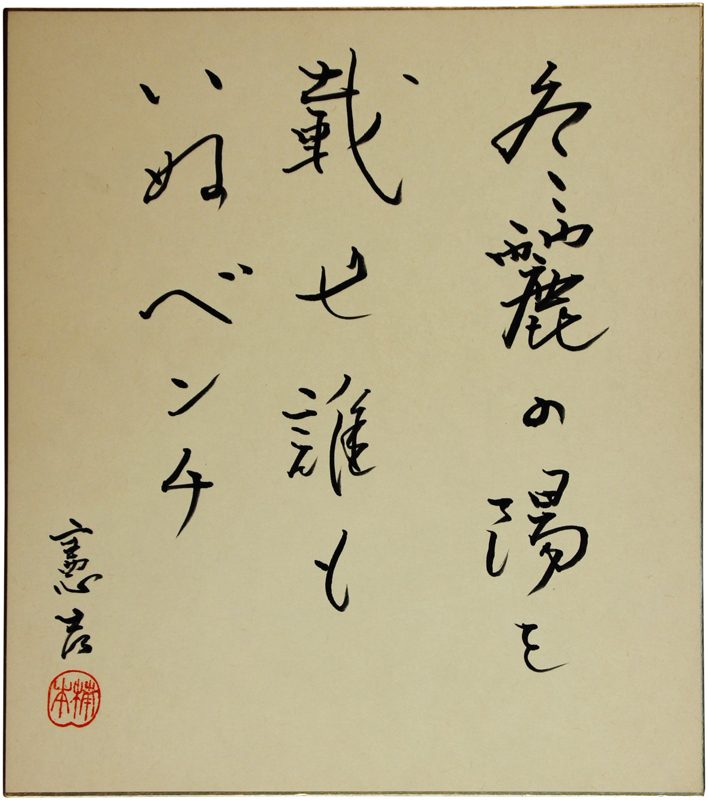 冬麗の陽を
載せ誰も
いぬベンチ
憲吉
楠本